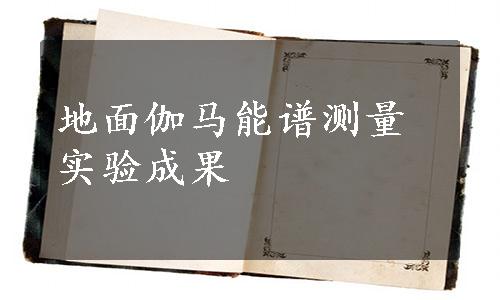 地面伽马能谱测量
实验成果